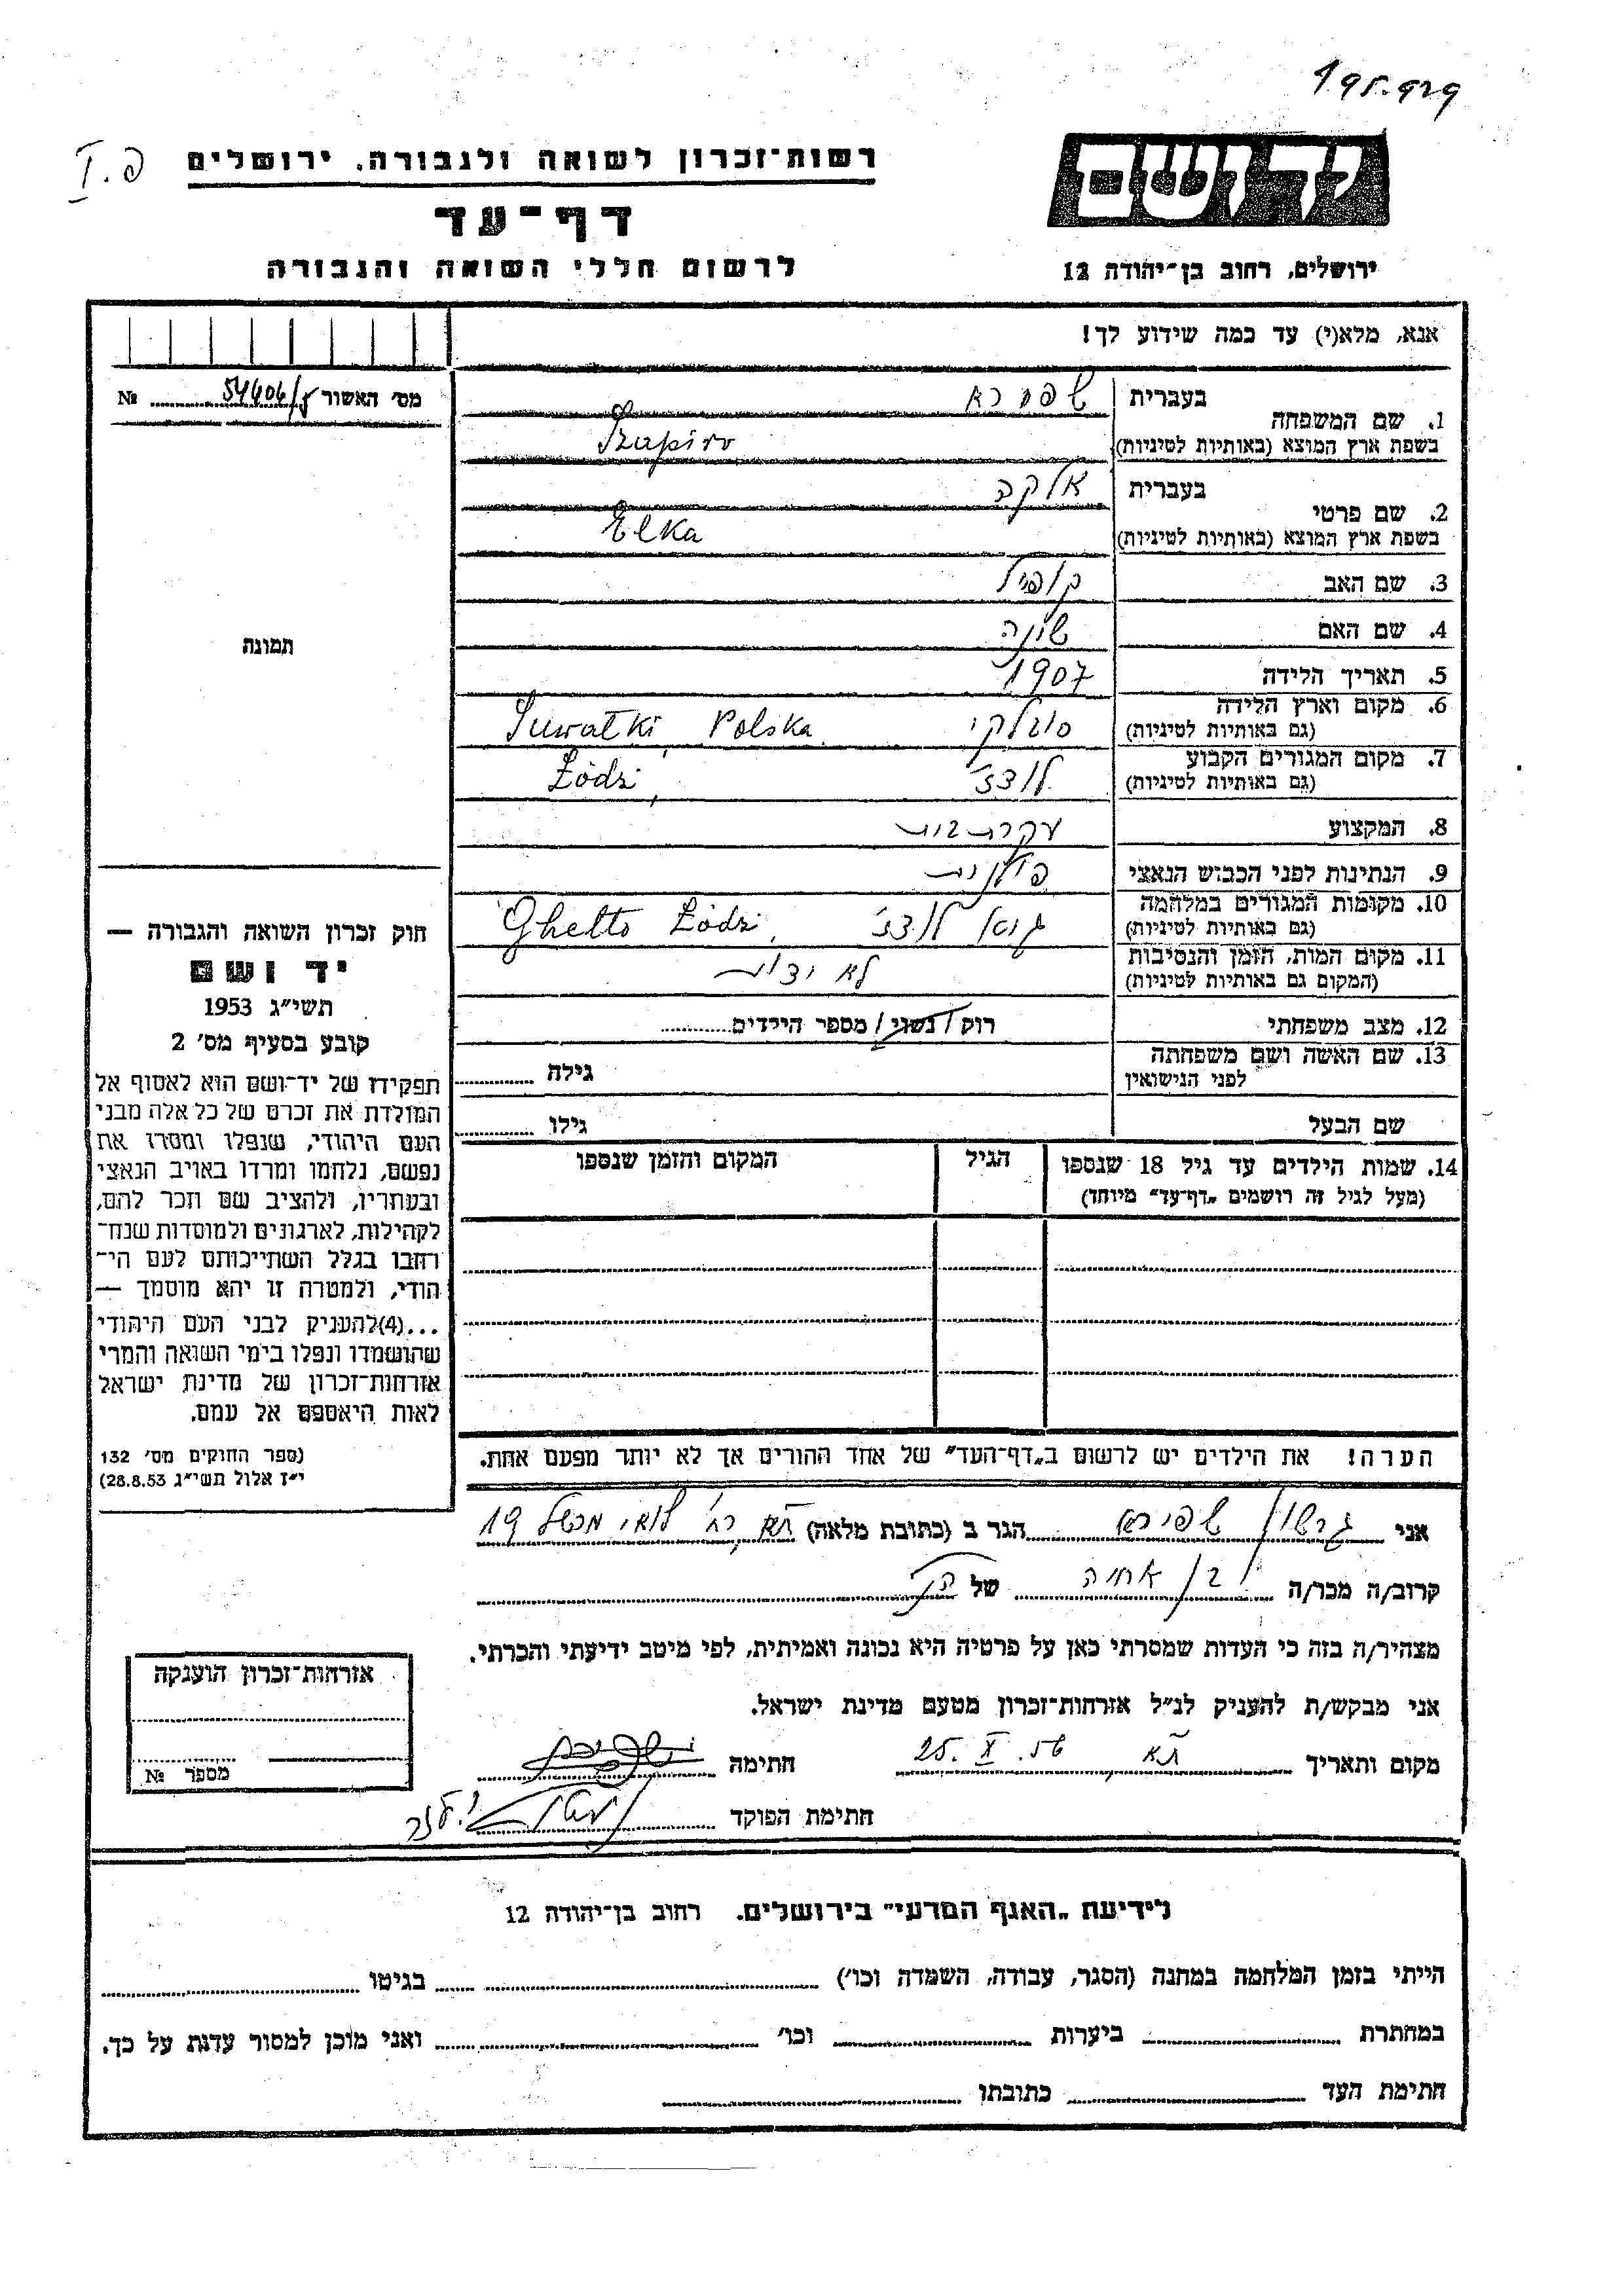 195.929
פ. I
רשות־זכרון לשואה ולגבורה, ירושלים
יד ושם
דף־עד
לרשום חללי השואה והגבורה
ירושלים, רחוב בן־יהודה 12
אנא, מלא(י) עד כמה שידוע לך!
מס׳ האשור № 54606/
1. שם המשפחה בעברית שפירא
בשפת ארץ המוצא (באותיות לטיניות) Szapiro
2. שם פרטי בעברית אלקה
בשפת ארץ המוצא (באותיות לטיניות) Elka
3. שם האב קופיל
4. שם האם שונה
5. תאריך הלידה 1907
6. מקום וארץ הלידה (גם באותיות לטיניות) סובלקי Suwałki, Polska
7. מקום המגורים הקבוע (גם באותיות לטיניות) לודז׳ Łódzi,
8. המקצוע עקרת בית
9. הנתינות לפני הכבוש הנאצי פולנית
10. מקומות המגורים במלחמה (גם באותיות לטיניות) גטו לודז׳ Ghetto Łódzi,
11. מקום המות, הזמן והנסיבות (המקום גם באותיות לטיניות) לא ידוע
12. מצב משפחתי רוק / נשוי / מספר הילדים
13. שם האשה ושם משפחתה לפני הנישואין גילה
שם הבעל גילו
14. שמות הילדים עד גיל 18 שנספו הגיל המקום והזמן שנספו
(מעל לגיל זה רושמים „דף־עד״ מיוחד)
הערה! את הילדים יש לרשום ב„דף־העד״ של אחד ההורים אך לא יותר מפעם אחת.
תמונה
חוק זכרון השואה והגבורה —
יד ושם
תשי״ג 1953
קובע בסעיף מס׳ 2
תפקידו של יד־ושם הוא לאסוף אל
המולדת את זכרם של כל אלה מבני
העם היהודי, שנפלו ומסרו את
נפשם, נלחמו ומרדו באויב הנאצי
ובעוזריו, ולהציב שם וזכר להם,
לקהילות, לארגונים ולמוסדות שנח־
רבו בגלל השתייכותם לעם הי־
הודי, ולמטרה זו יהא מוסמך —
...(4)להעניק לבני העם היהודי
שהושמדו ונפלו בימי השואה והמרי
אזרחות־זכרון של מדינת ישראל
לאות היאספם אל עמם.
(ספר החוקים מס׳ 132
י״ז אלול תשי״ג 28.8.53)
אני גרשון שפירא הגר ב (כתובת מלאה) תא רח׳ 19
קרוב/ה מכר/ה בן אחיה של הנ״ל
מצהיר/ה בזה כי העדות שמסרתי כאן על פרטיה היא נכונה ואמיתית, לפי מיטב ידיעתי והכרתי.
אני מבקש/ת להעניק לנ״ל אזרחות־זכרון מטעם מדינת ישראל.
מקום ותאריך תא 25. X .56 חתימה
חתימת הפוקד
אזרחות־זכרון הוענקה
מספר №
לידיעת „האגף המדעי״ בירושלים. רחוב בן־יהודה 12
הייתי בזמן המלחמה במחנה (הסגר, עבודה, השמדה וכו׳) בגיטו
במחתרת ביערות וכו׳ ואני מוכן למסור עדות על כך.
חתימת העד כתובתו